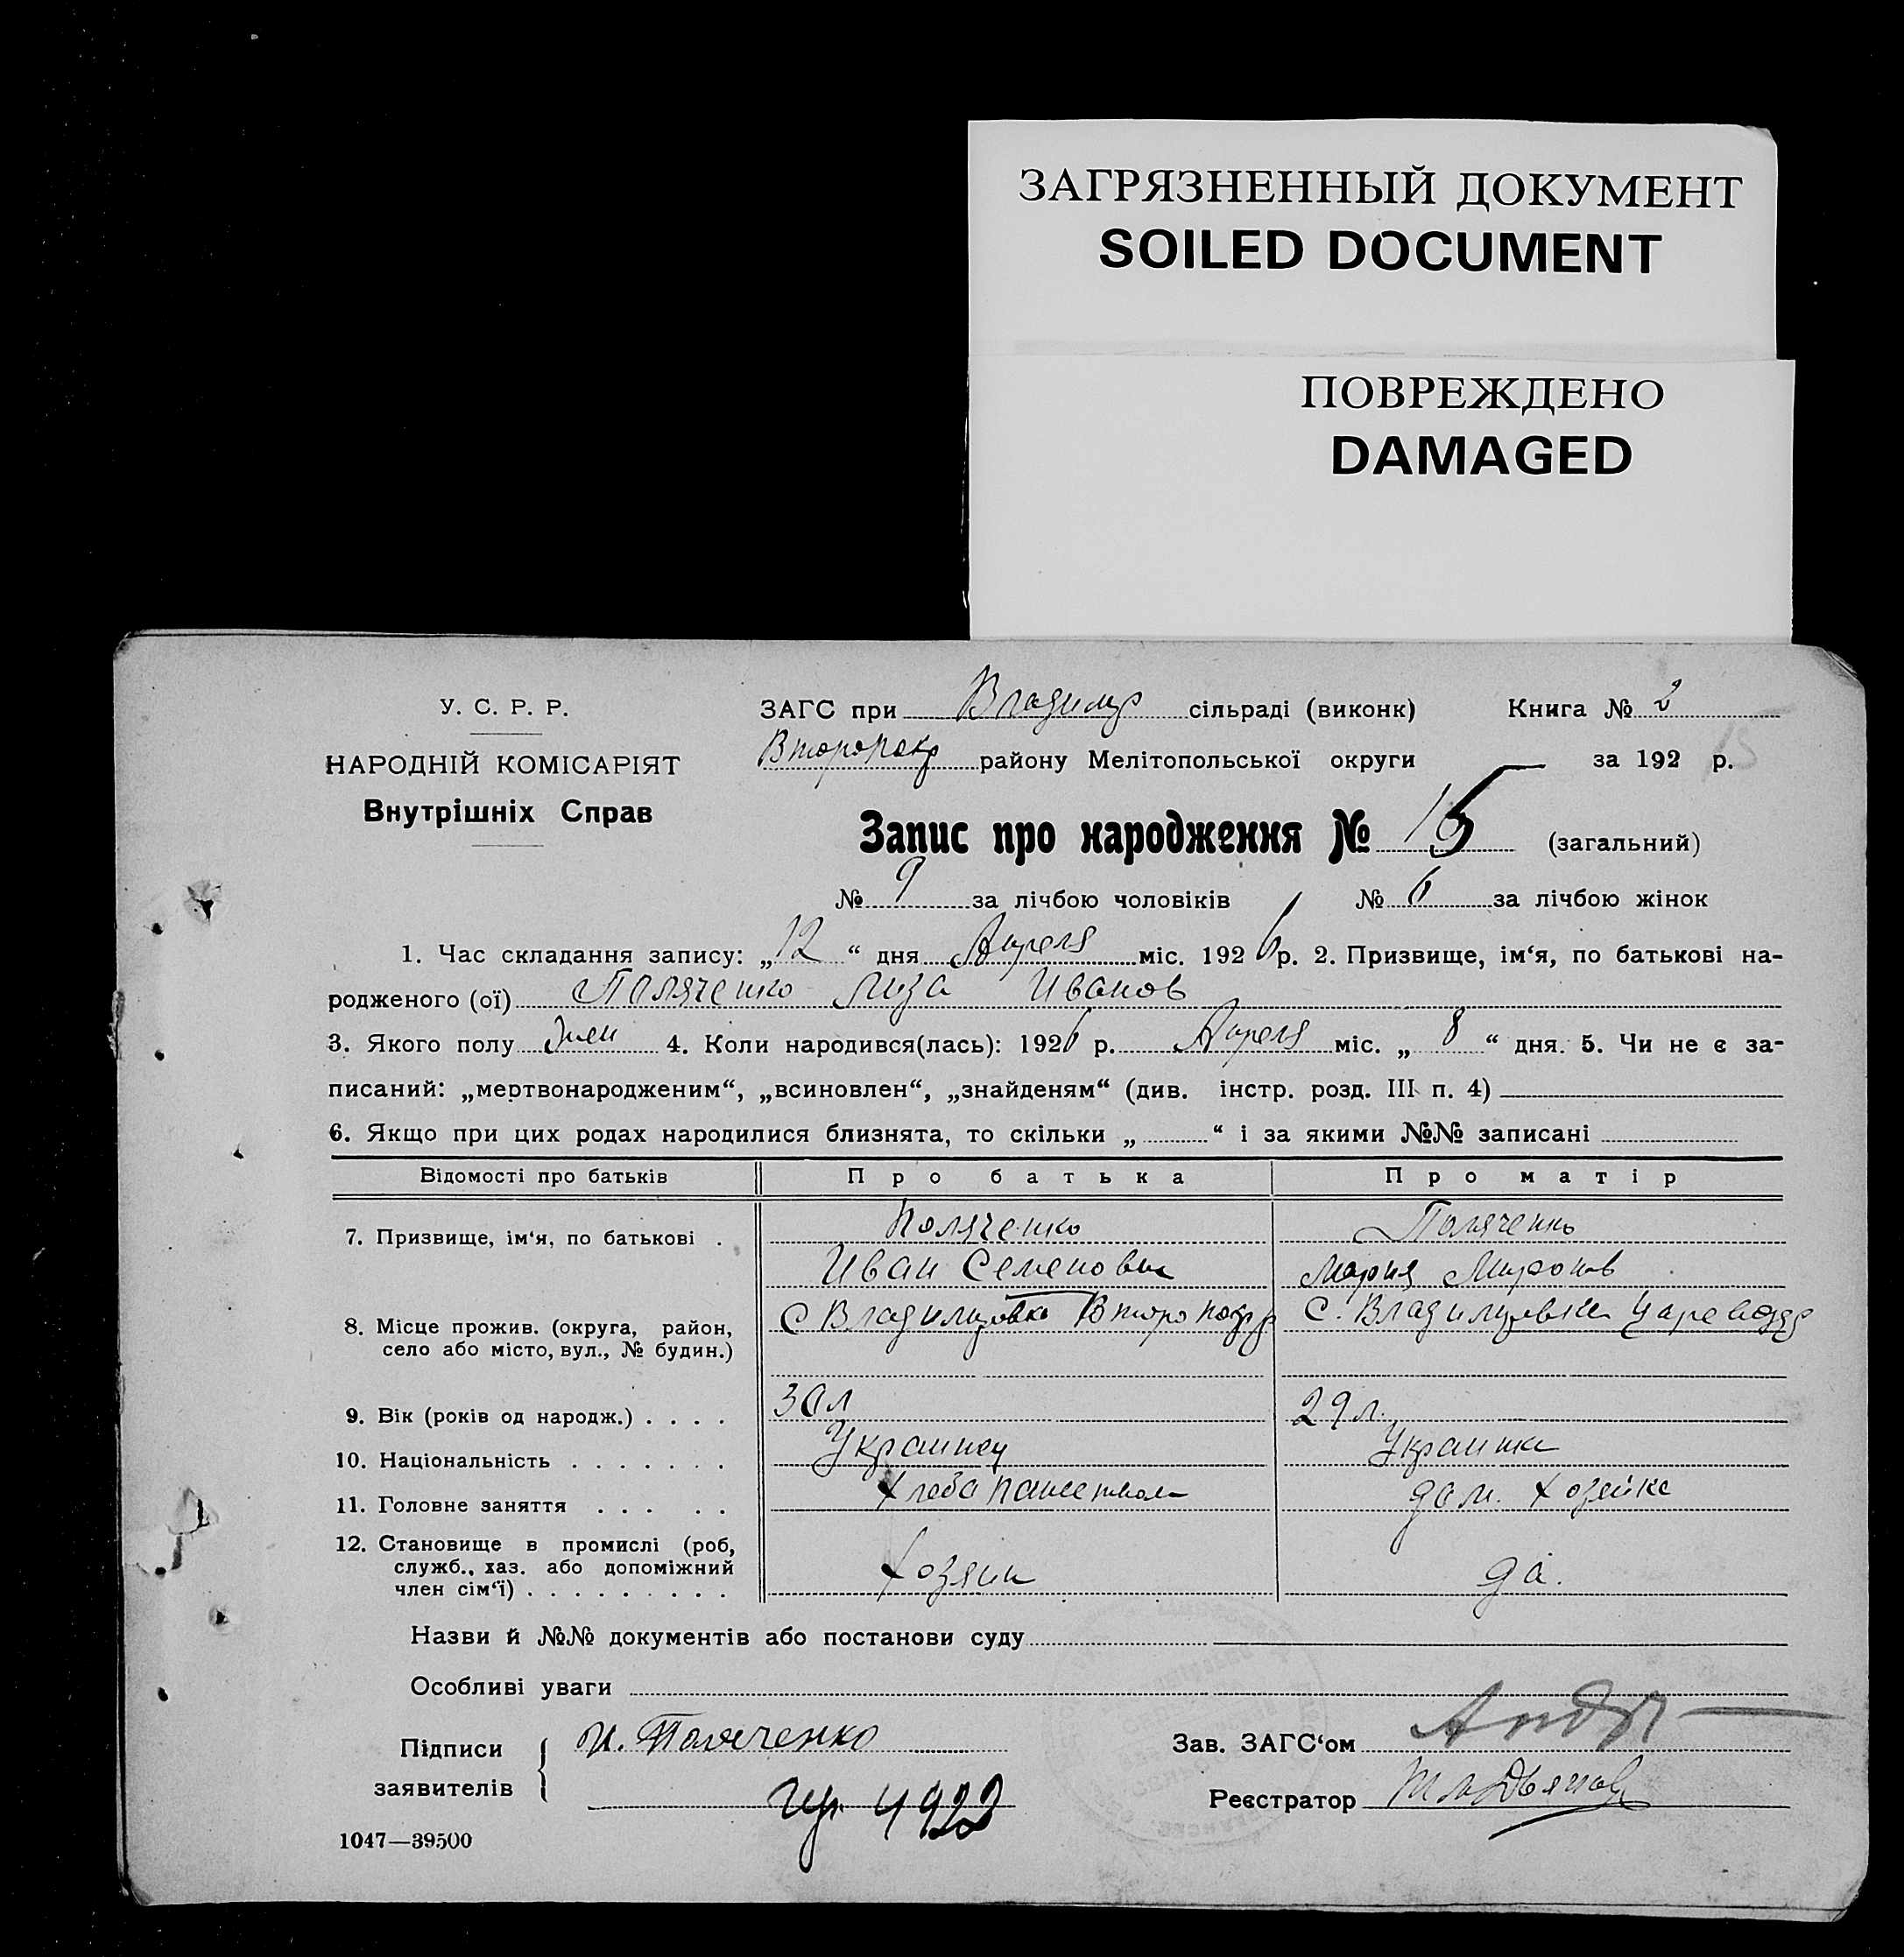 ЗАГРЯЗНЕННЫЙ ДОКУМЕНТ
SOILED DOCUMENT
ПОВРЕЖДЕНО
DAMAGED
У. С. Р. Р.
НАРОДНІЙ КОМІСАРІЯТ
Внутрішніх Справ
ЗАГС при Владимир сільраді (виконк) Книга № 2
Второпокр району Мелітопольської округи за 192 р.
Запис про народження № 15 (загальний)
№ 9 за лічбою чоловіків № 6 за лічбою жінок
1. Час складання запису: „12“ дня Апреля міс. 1926 р. 2. Призвище, ім‘я, по батькові на-
родженого (ої) Поляченко Лиза Иванов
3. Якого полу жен 4. Коли народився(лась): 1926 р. Апреля міс. „8“ дня. 5. Чи не є за-
писаний: „мертвонародженим“, „всиновлен“, „знайденям“ (див. інстр. розд. III п. 4)
6. Якщо при цих родах народилися близнята, то скільки „ “ і за якими №№ записані
Відомості про батьків Про батька Про матір
7. Призвище, ім‘я, по батькові . Поляченко Поляченко
Иван Семенович Мария Миронов
8. Місце прожив. (округа, район, село або місто, вул., № будин.) С Владимировка Второпокр р С. Владимировка
9. Вік (років од народж.) . . . . 30 л 29 л.
10. Національність . . . . . . . Украинец Украинка
11. Головне заняття . . . . . Хлебопашество дом. хозейка
12. Становище в промислі (роб, служб., хаз. або допоміжний член сім‘ї) . . . . . . . . . Хозяин да.
Назви й №№ документів або постанови суду
Особливі уваги
Підписи заявителів И. Поляченко
Зав. ЗАГС‘ом
Реєстратор
1047—39500